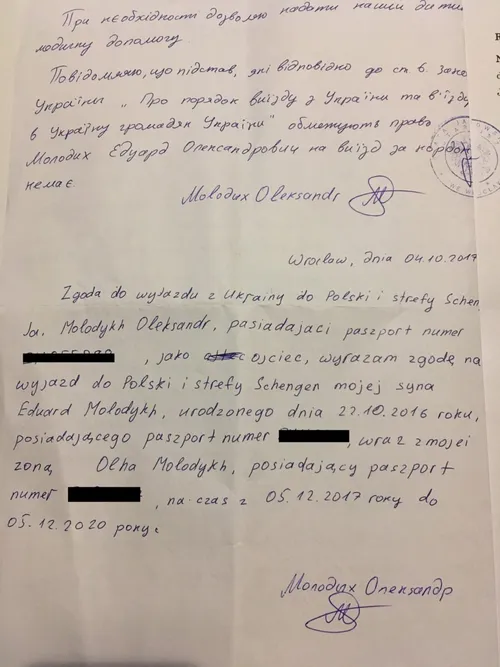 При необхідності дозволяю надати нашій дитин
медичну допомогу.
Повідомляю, що підстав, які відповідно до ст. 6. Зако
України „Про порядок виїзду з України та в'їзду
в Україну громадян України" обмежують право
Молодих Едуард Олександрович на виїзд за кордон
немає.
Молодих Oleksandr
Wrocław, dnia 04.10.2017
Zgoda do wyjazdu z Ukrainy do Polski i strefy Schen
Ja, Molodykh Oleksandr, pasiadajaci paszport numer
, jako ojciec, wyrażam zgodę na
wyjazd do Polski i strefy Schengen mojej syna
Eduard Molodykh, urodzonego dnia 22.10.2016 roku,
posiadającego paszport numer , wraz z mojei
żoną Olha Molodykh, posiadający paszport
numer , na czas z 05.12.2017 roku do
05.12.2020 року.
Молодих Олександр